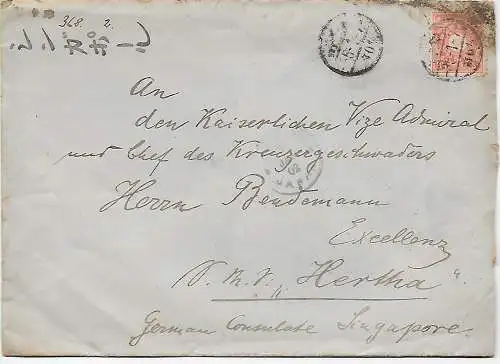 368. 2.
An
den Kaiserlichen Vize Admiral
und Chef des Kreuzergeschwaders
Herrn Bendemann
Excellenz
S. M. S. „Hertha“
German Consulate Singapore.